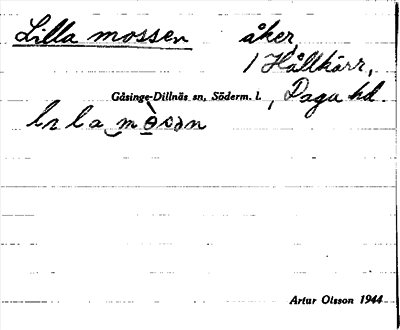 Lilla mossen åker,
1 Hållkärr,
Gåsinge-Dillnäs sn, Söderm. l., Daga hd.
Artur Olsson 1944